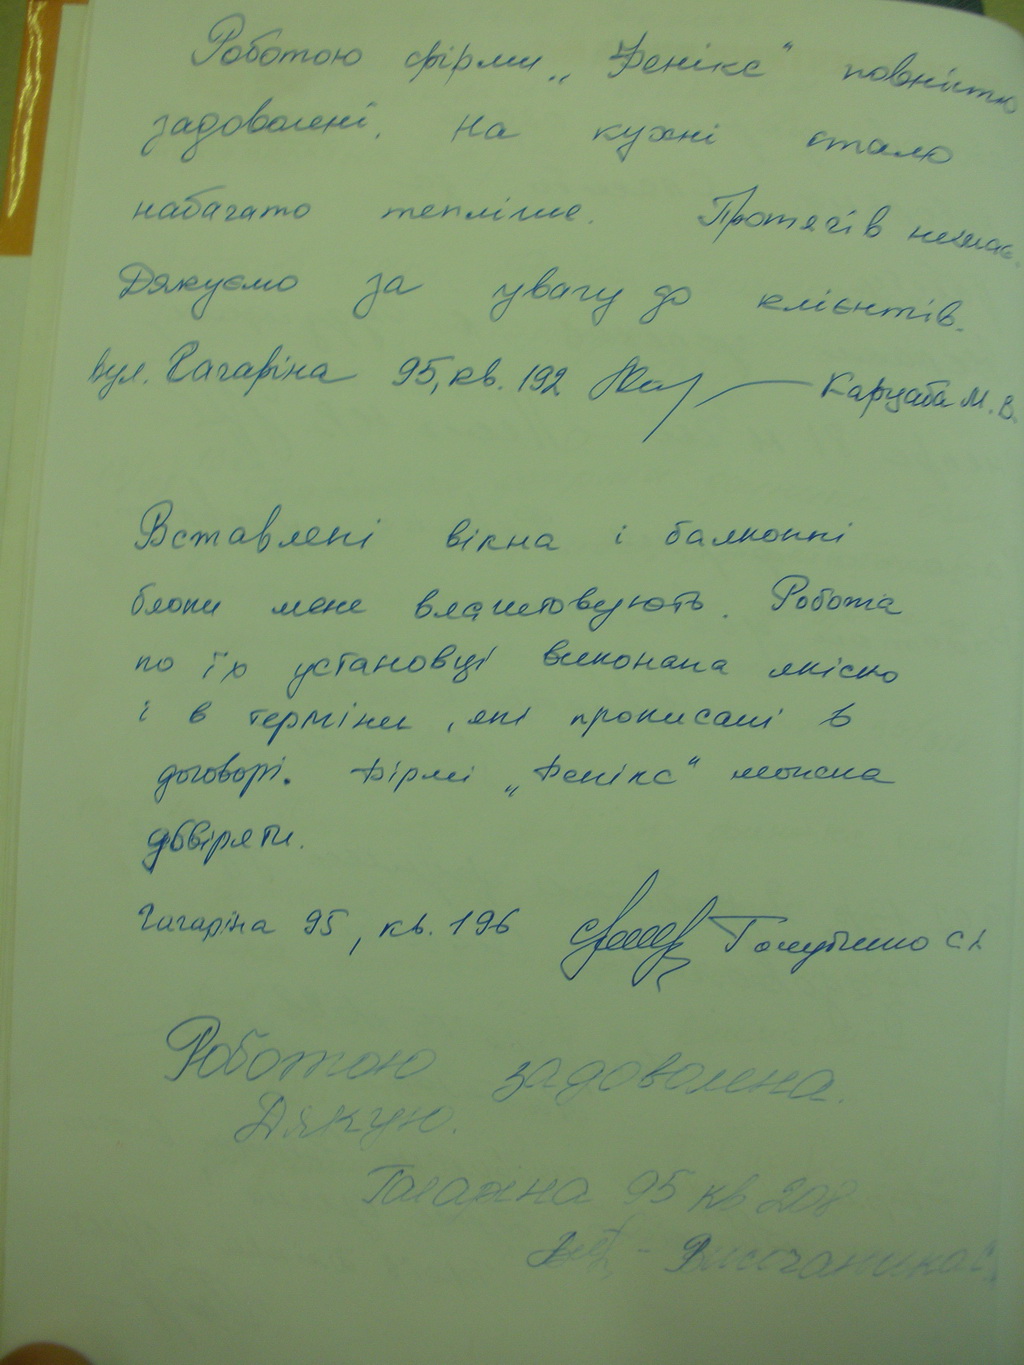 Роботою фірми „Фенікс“ повністю
задоволені. На кухні стало
набагато тепліше. Протягів немає.
Дякуємо за увагу до клієнтів.
вул. Гагаріна 95, кв. 192 Карцаба М. В.
Вставлені вікна і балконні
блоки мене влаштовують. Робота
по їх установці виконана якісно
і в терміни, які прописані в
договорі. Фірмі „Фенікс“ можна
довіряти.
Гагаріна 95, кв. 196
Роботою задоволена.
Дякую.
Гагаріна 95 кв 208